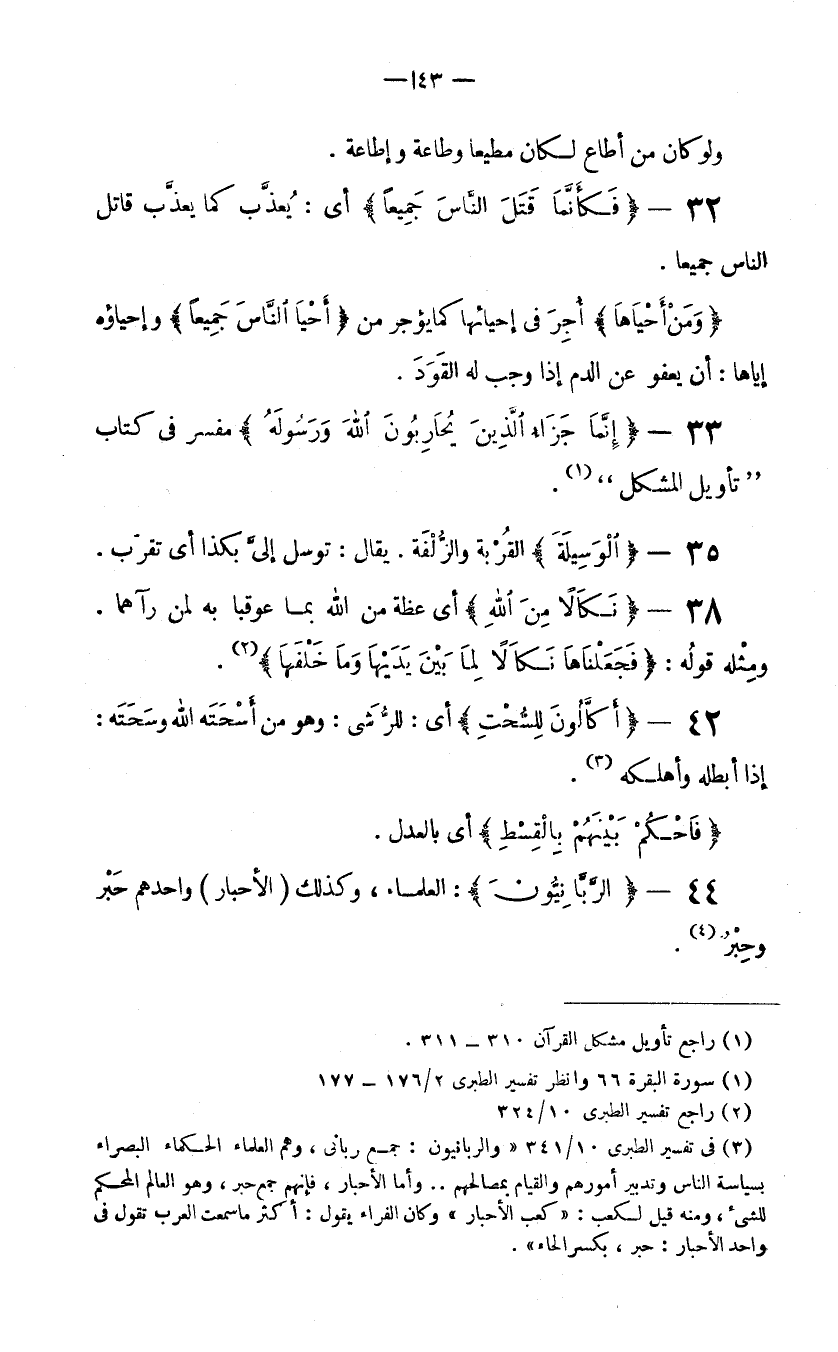 — ١٤٣ —
ولو كان من أطاع لكان مطيعا وطاعة وإطاعة .
٣٢ — ﴿ فَكَأَنَّمَا قَتَلَ النَّاسَ جَمِيعاً ﴾ أى : يُعذَّب كما يعذَّب قاتل
الناس جميعا .
﴿ وَمَنْ أَحْيَاهَا ﴾ أُجِرَ فى إحيائها كما يؤجر من ﴿ أَحْيَا ٱلنَّاسَ جَمِيعاً ﴾ وإحياؤه
إياها : أن يعفو عن الدم إذا وجب له القَوَدَ .
٣٣ — ﴿ إِنَّمَا جَزَاء ٱلَّذِينَ يُحَارِبُونَ ٱللهَ وَرَسُولَهُ ﴾ مفسر فى كتاب
” تأويل المشكل “ (١) .
٣٥ — ﴿ ٱلْوَسِيلَةَ ﴾ القُرْبة والزُّلْفَة . يقال : توسل إلىَّ بكذا أى تقرّب .
٣٨ — ﴿ نَكَالًا مِنَ ٱللهِ ﴾ أى عظة من الله بما عوقبا به لمن رآهما .
ومِثْله قولُه : ﴿ فَجَعَلْنَاهَا نَكَالًا لِمَا بَيْنَ يَدَيْهَا وَمَا خَلْفَهَا ﴾(٢) .
٤٢ — ﴿ أَكَّالُونَ لِلسُّحْتِ ﴾ أى : للرُّشَى : وهو من أَسْحَتَه الله وسَحَتَه :
إذا أبطله وأهلكه (٣) .
﴿ فَاحْكُمْ بَيْنَهُمْ بِالْقِسْطِ ﴾ أى بالعدل .
٤٤ — ﴿ الرَّبَّانِيُّونَ ﴾ : العلماء ، وكذلك ( الأحبار ) واحدهم حَبْر
وحِبْرُ (٤) .
(١) راجع تأويل مشكل القرآن ٣١٠ — ٣١١ .
(١) سورة البقرة ٦٦ وانظر تفسير الطبرى ١٧٦/٢ — ١٧٧
(٢) راجع تفسير الطبرى ٣٢٤/١٠
(٣) فى تفسير الطبرى ٣٤١/١٠ « والربانيون : جمع ربانى ، وهم العلماء الحكماء البصراء
بسياسة الناس وتدبير أمورهم والقيام بمصالحهم .. وأما الأحبار ، فإنهم جمع حبر ، وهو العالم المحكم
للشىء ، ومنه قيل لكعب : « كعب الأحبار » وكان الفراء يقول : أكثر ماسمعت العرب تقول فى
واحد الأحبار : حبر ، بكسر الحاء» .